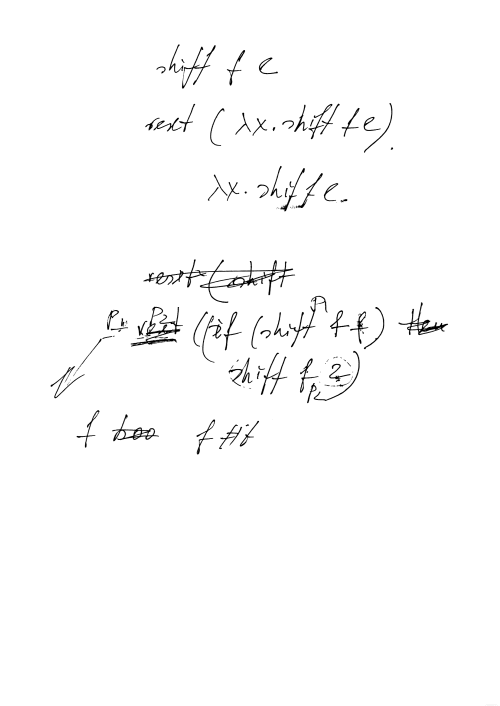 shift f e
reset (λx. shift f e).
λx. shift f e.
reset (shift
P1 P2 reset (if (shift f f) then
shift f 2)
P2
f boo f #if